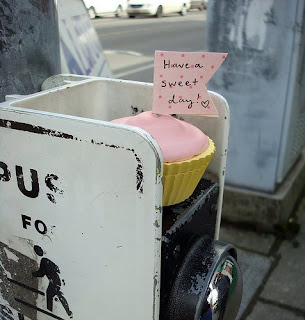 Have a
sweet
day! ♡
PUS
FO